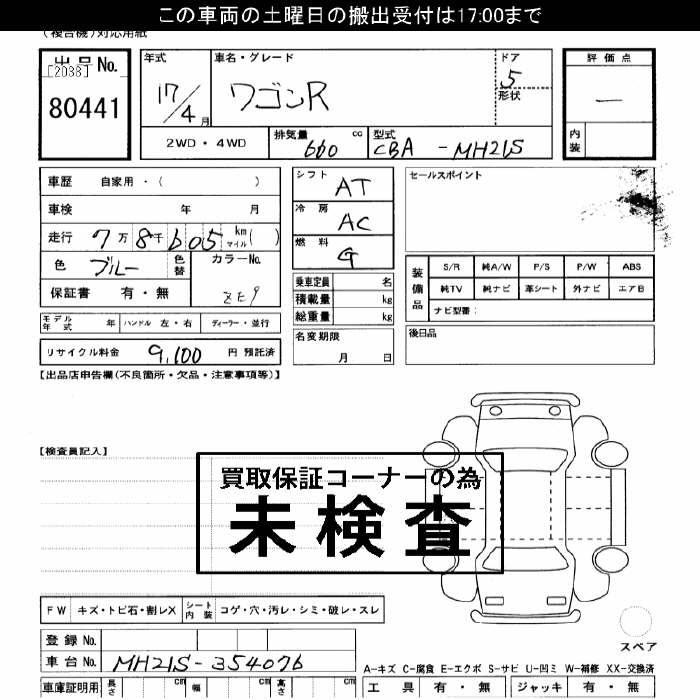 この車両の土曜日の搬出受付は17:00まで
(複合機)対応用紙
出品No.
[2038]
80441
年式
17/4月
車名・グレード
ワゴンR
ドア
5
形状
評価点
―
内装
2WD・4WD
排気量
660
cc
型式
CBA - MH21S
車歴 自家用・( )
車検 年 月
走行 7万8千605 km マイル( )
色 ブルー 色替
カラーNo.
ZE9
保証書 有・無
シフト
AT
冷房
AC
燃料
G
乗車定員 名
積載量 kg
総重量 kg
名変期限
月 日
セールスポイント
装備品
S/R 純A/W P/S P/W ABS
純TV 純ナビ 革シート 外ナビ エアB
ナビ型番:
後日品
モデル年式 年 ハンドル 左・右 ディーラー・並行
リサイクル料金 9,100 円 預託済
【出品店申告欄(不良箇所・欠品・注意事項等)】
【検査員記入】
買取保証コーナーの為
未検査
FW キズ・トビ石・割レX シート内装 コゲ・穴・汚レ・シミ・破レ・スレ
登録No.
車台No. MH21S-354076
スペア
A-キズ C-腐食 E-エクボ S-サビ U-凹ミ W-補修 XX-交換済
車庫証明用 長さ cm 幅 cm 高さ cm
工具 有・無 ジャッキ 有・無